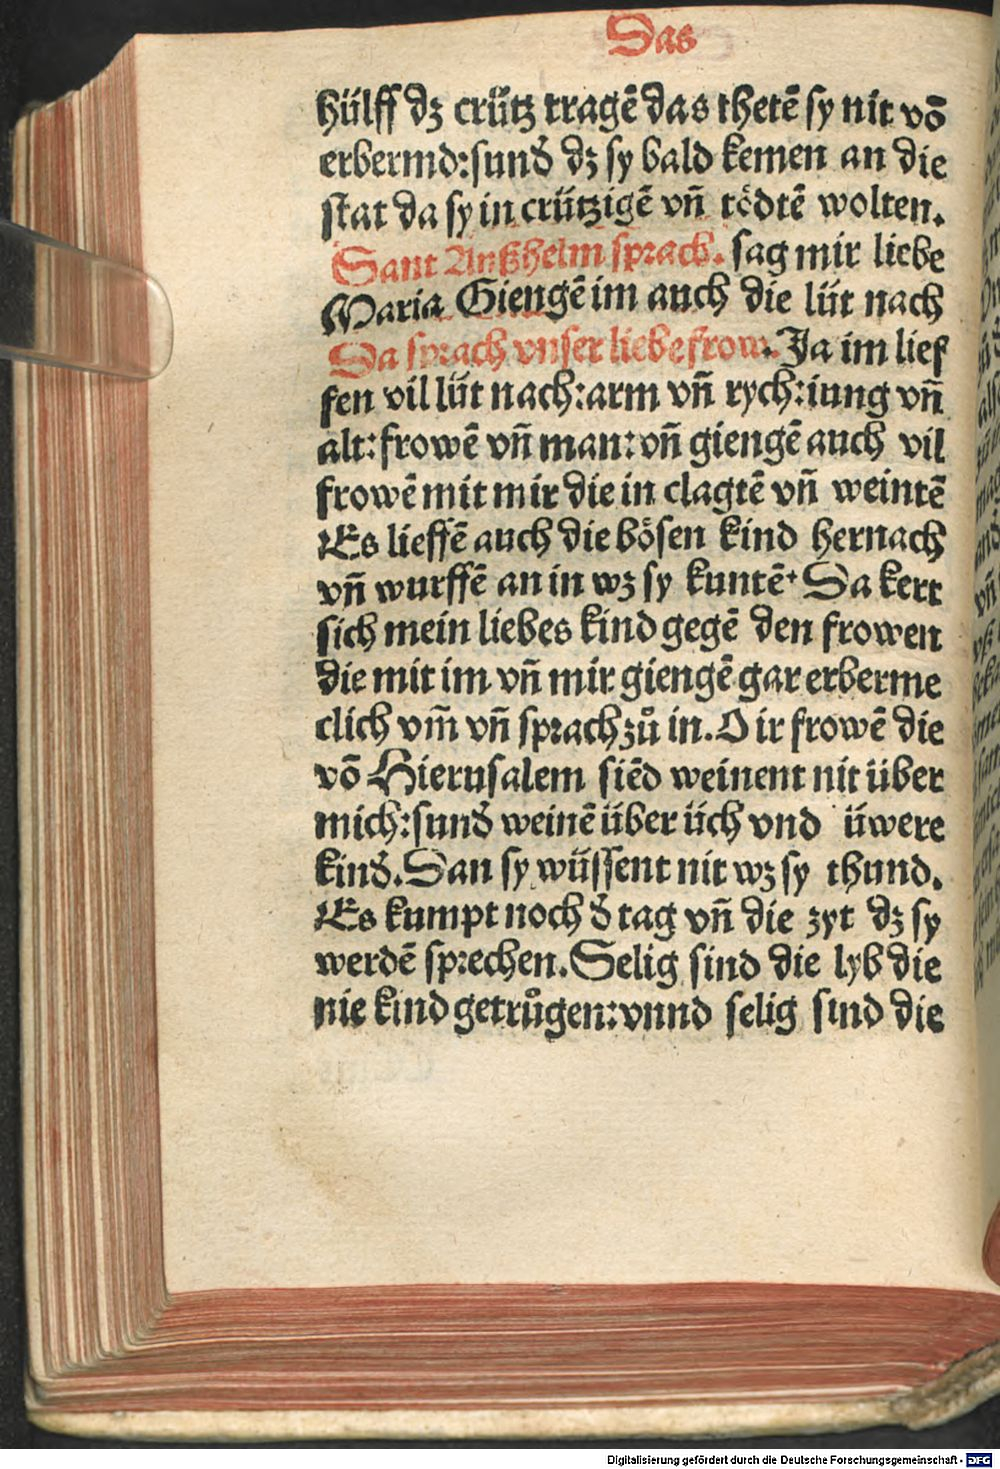 Das
hülff dz crütz tragē das thetē sy nit vō
erbermd:sunđ dz sy bald kemen an die
stat da sy in crützigē vñ tödtē wolten.
Sant Anßhelm sprach. sag mir liebe
Maria Giengē im auch die lüt nach
Da sprach vnser liebe frow. Ja im lief
fen vil lüt nach:arm vñ rych:iung vñ
alt:frowē vñ man:vñ giengē auch vil
frowē mit mir die in clagtē vñ weintē
Es lieffē auch die bösen kind hernach
vñ wurffē an in wz sy kuntē. Da kert
sich mein liebes kind gegē den frowen
die mit im vñ mir giengē gar erberme
clich vm̄ vñ sprach zů in. O ir frowē die
vō Hierusalem siēd weinent nit über
mich:sunđ weinē über üch vnd üwere
kinđ. Dan sy wüssent nit wz sy thund.
Es kumpt noch đ tag vñ die zyt dz sy
werdē sprechen. Selig sind die lyb die
nie kind getrůgen:vnnd selig sind die
Digitalisierung gefördert durch die Deutsche Forschungsgemeinschaft - DFG